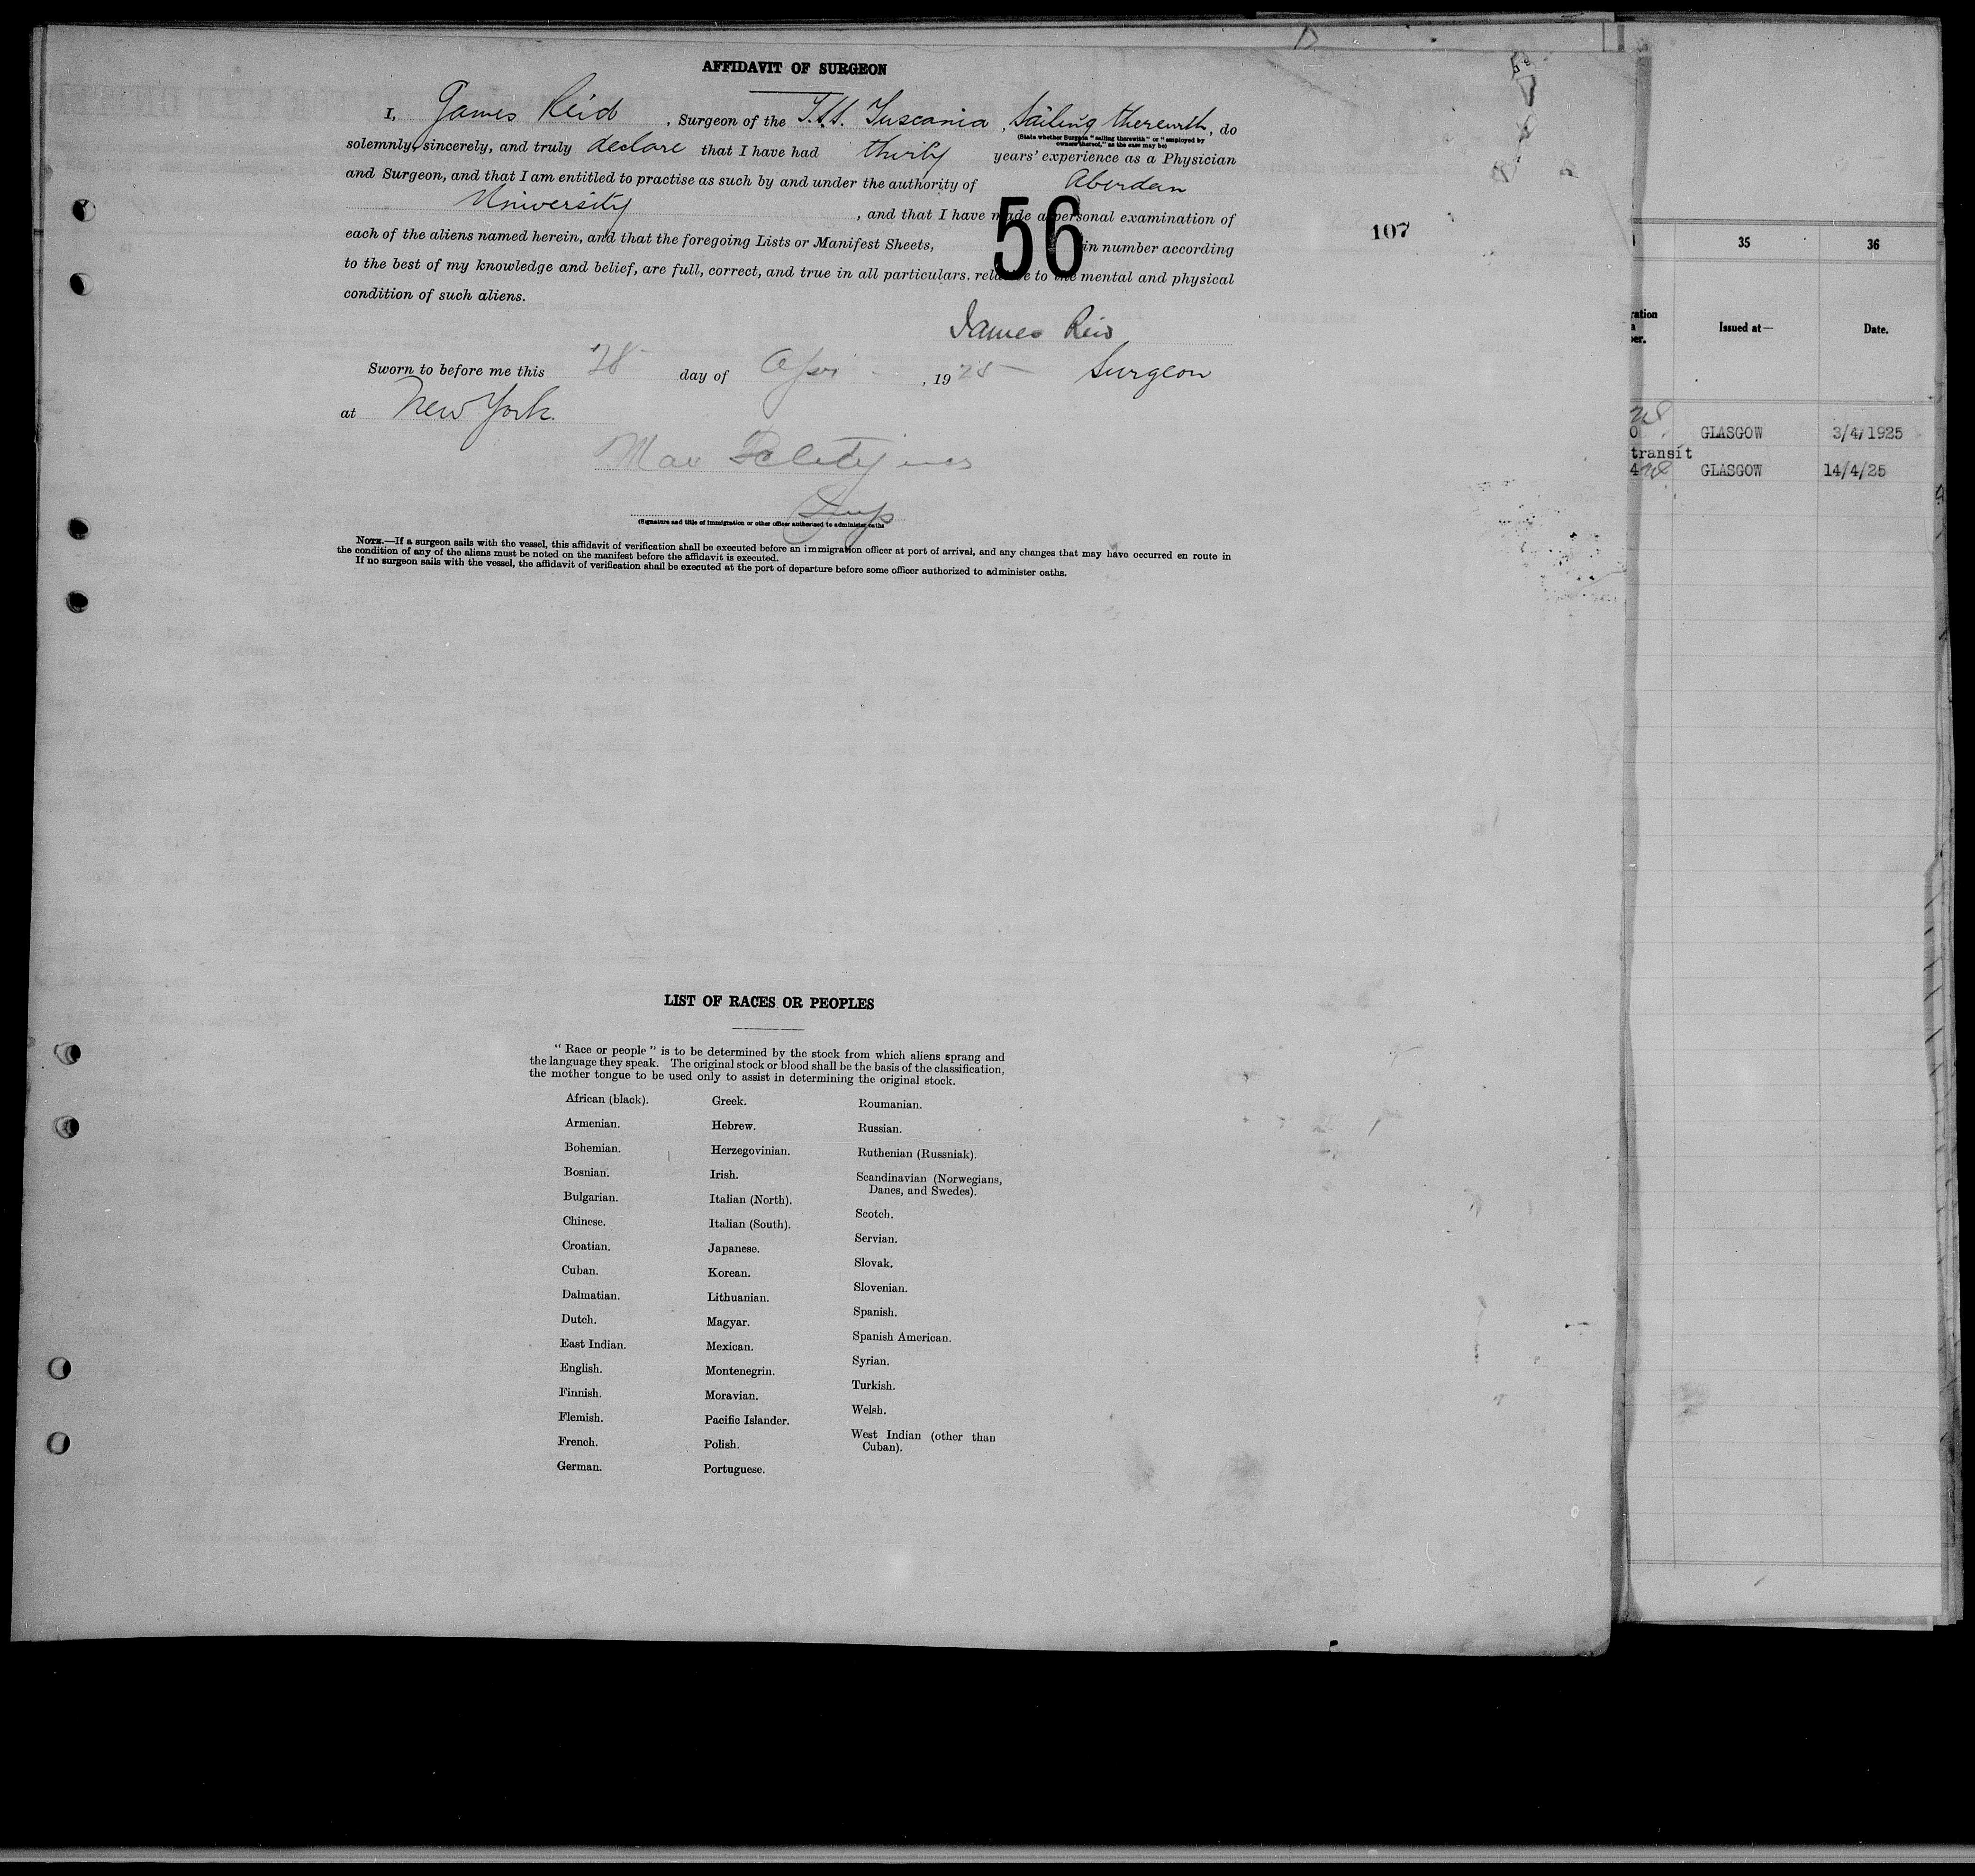 AFFIDAVIT OF SURGEON
I, James Reid, Surgeon of the T.S.S. Tuscania, Sailing therewith, do
(State whether Surgeon "sailing therewith" or "employed by
owners thereof," as the case may be)
solemnly, sincerely, and truly declare that I have had thirty years' experience as a Physician
and Surgeon, and that I am entitled to practise as such by and under the authority of Aberdeen
University, and that I have made a personal examination of
each of the aliens named herein, and that the foregoing Lists or Manifest Sheets, 56 in number according
to the best of my knowledge and belief, are full, correct, and true in all particulars, relative to the mental and physical
condition of such aliens.
107
James Reid
Surgeon
Sworn to before me this 28 day of Apri, 1925
at New York.
Max
(Signature and title of immigration or other officer authorised to administer oaths
NOTE.—If a surgeon sails with the vessel, this affidavit of verification shall be executed before an immigration officer at port of arrival, and any changes that may have occurred en route in
the condition of any of the aliens must be noted on the manifest before the affidavit is executed.
If no surgeon sails with the vessel, the affidavit of verification shall be executed at the port of departure before some officer authorized to administer oaths.
LIST OF RACES OR PEOPLES
"Race or people" is to be determined by the stock from which aliens sprang and
the language they speak. The original stock or blood shall be the basis of the classification,
the mother tongue to be used only to assist in determining the original stock.
African (black).
Armenian.
Bohemian.
Bosnian.
Bulgarian.
Chinese.
Croatian.
Cuban.
Dalmatian.
Dutch.
East Indian.
English.
Finnish.
Flemish.
French.
German.
Greek.
Hebrew.
Herzegovinian.
Irish.
Italian (North).
Italian (South).
Japanese.
Korean.
Lithuanian.
Magyar.
Mexican.
Montenegrin.
Moravian.
Pacific Islander.
Polish.
Portuguese.
Roumanian.
Russian.
Ruthenian (Russniak).
Scandinavian (Norwegians,
Danes, and Swedes).
Scotch.
Servian.
Slovak.
Slovenian.
Spanish.
Spanish American.
Syrian.
Turkish.
Welsh.
West Indian (other than
Cuban).
35 36
Issued at— Date.
GLASGOW 3/4/1925
transit
GLASGOW 14/4/25